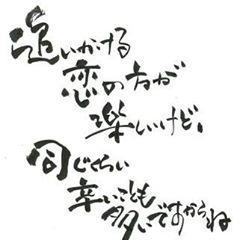 追いかける
恋の方が
楽しいけど、
同じくらい
辛いことも
多いですからね